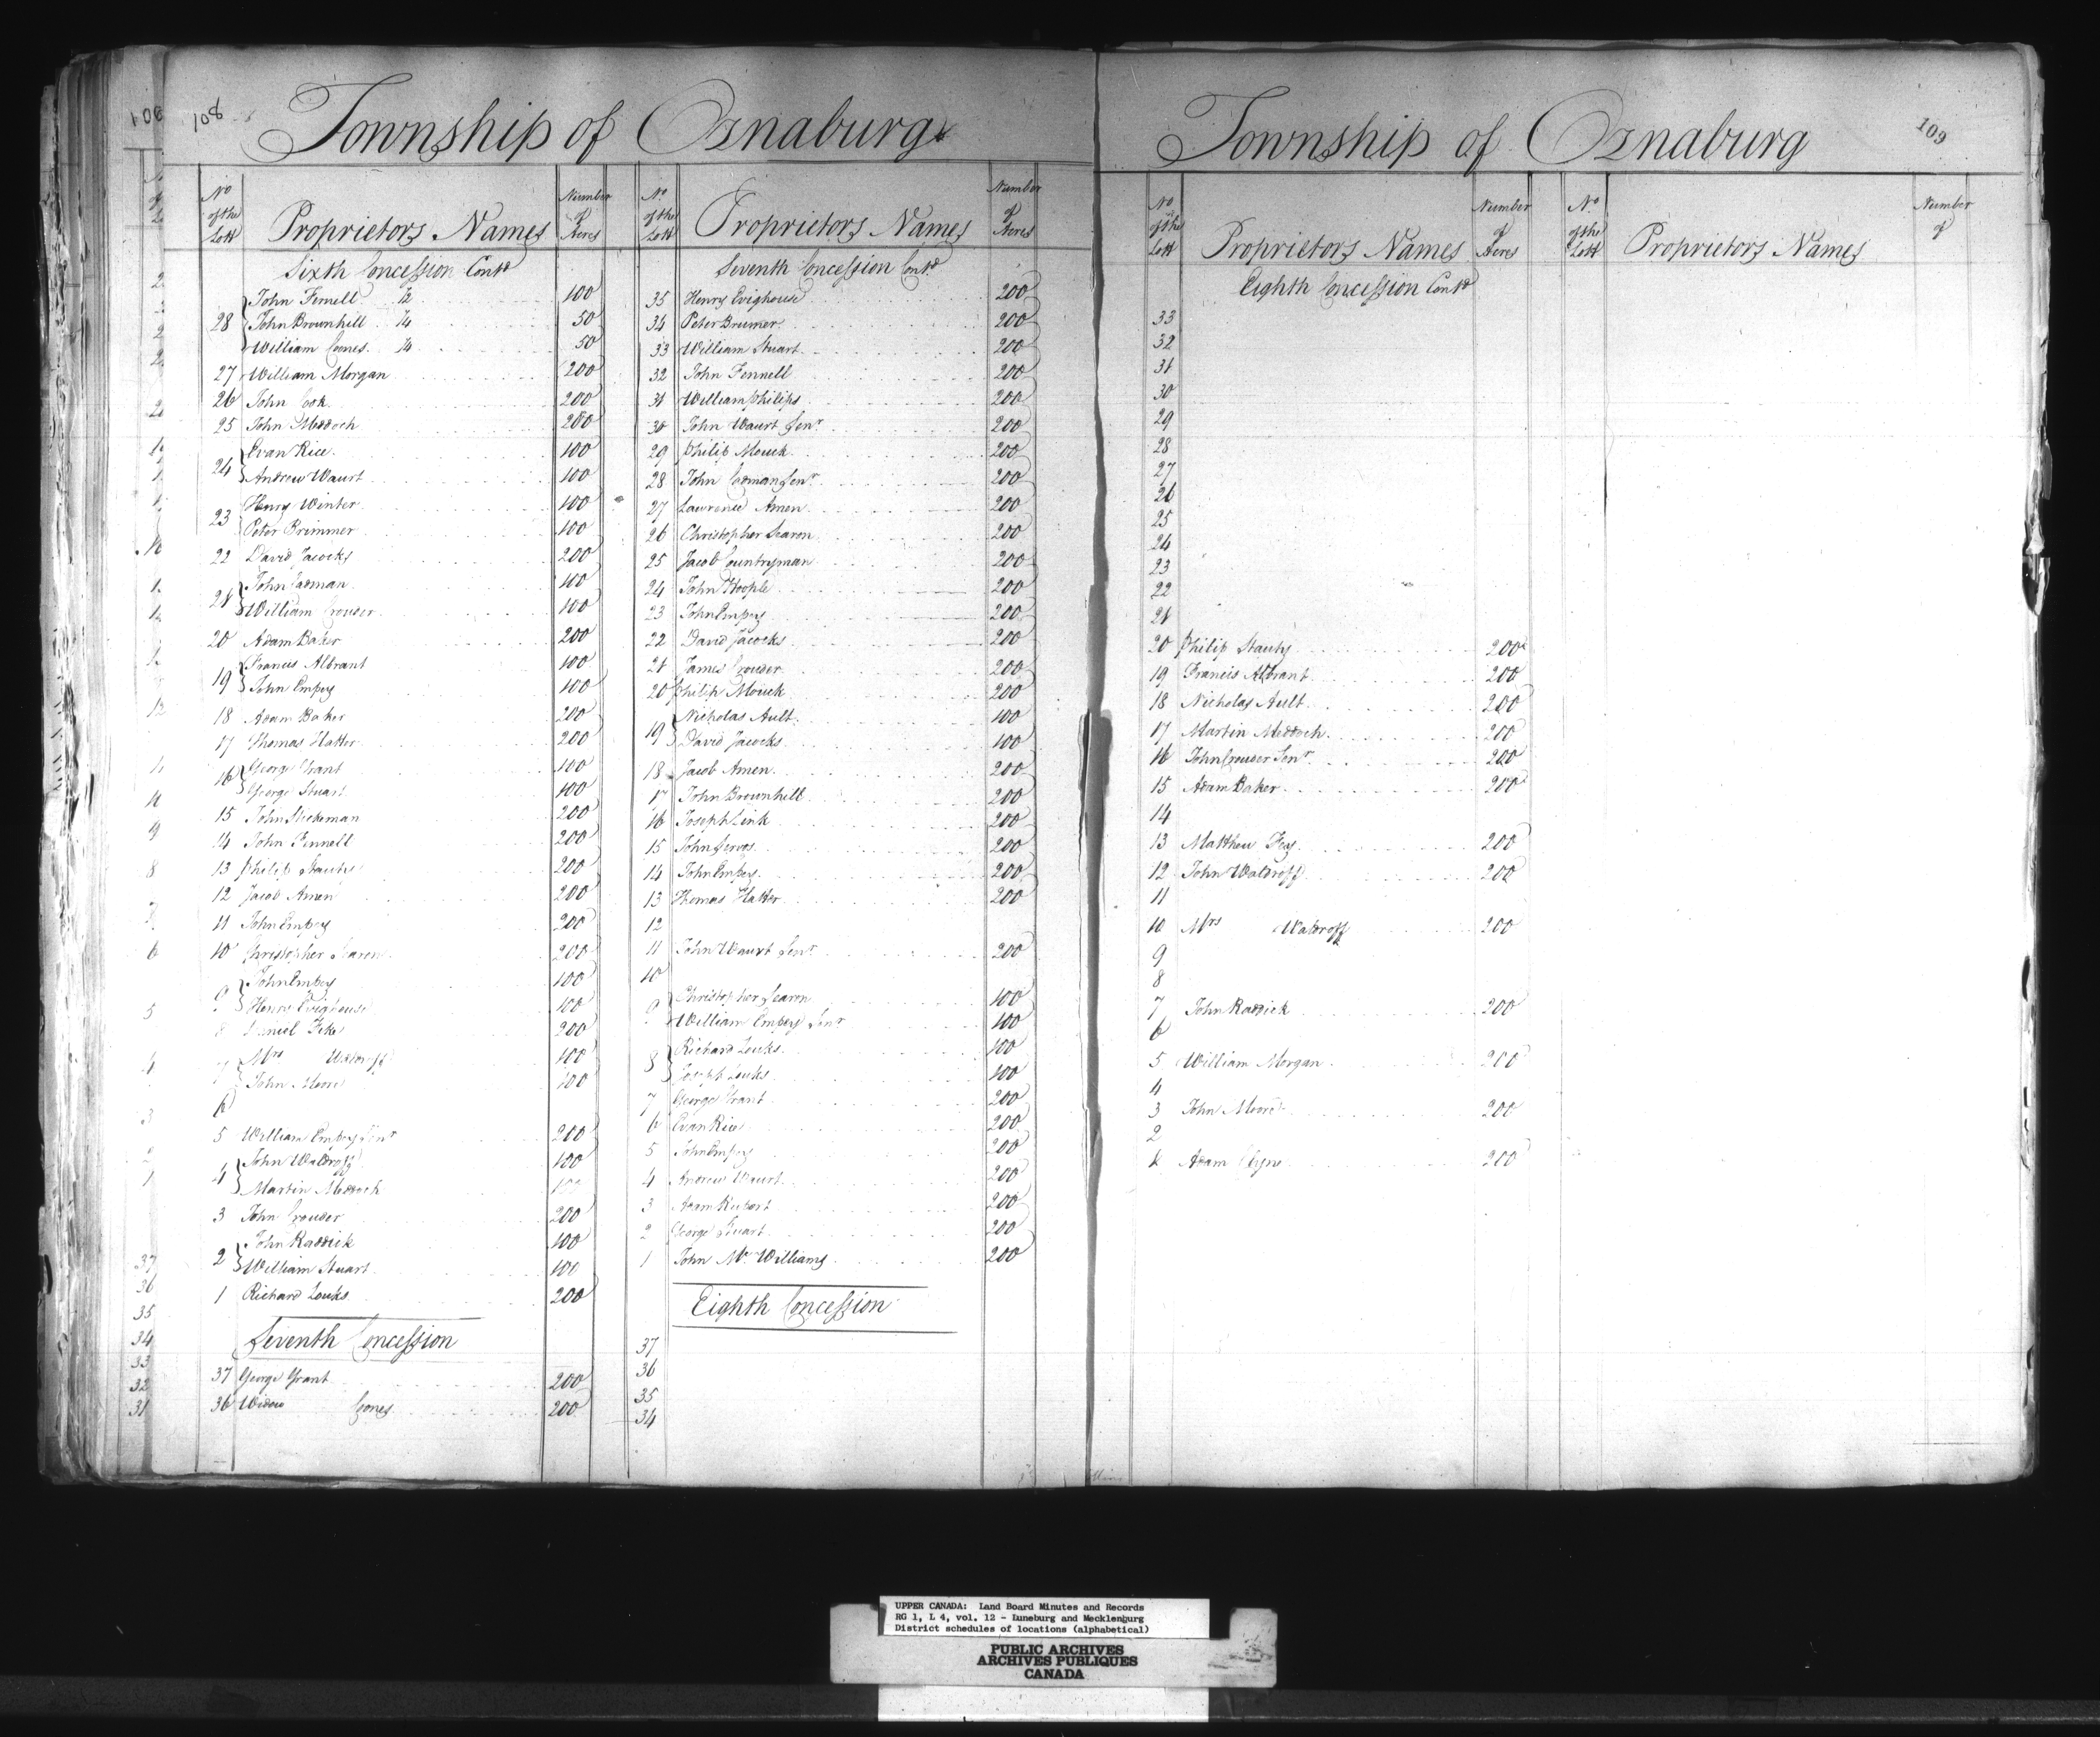 108
Township of Oznaburg
No of the Lott
Proprietors Names
Number of Acres
Sixth Concession Contd
John Fennell 1/2 100
28 John Brownhill 1/4 50
William Cones 1/4 50
27 William Morgan 200
26 John Cook 200
25 John Meddoch 200
Evan Rice 100
24 Andrew Waurt 100
Henry Winter 100
23
Peter Brimmer 100
22 David Jacocks 200
John Cadman 100
21 William Crouder 100
20 Adam Baker 200
Francis Albrant 100
19 John Empey 100
18 Adam Baker 200
17 Thomas Hatter 200
George Grant 100
16 George Stuart 100
15 John Dickeman 200
14 John Finnell 200
13 Philip Stauty 200
12 Jacob Amen 200
11 John Empey 200
10 Christopher Searon 200
John Empey 100
9 Henry Evighouse 100
8 Daniel Fike 200
Mrs Waldroff 100
7 John Moore 100
6
5 William Empey Senr 200
John Waldroff 100
4 Martin Meddoch 100
3 John Crouder 200
John Raddick 100
2 William Stuart 100
1 Richard Louks 200
Seventh Concession
37 George Grant 200
36 Widow Cones 200
No of the Lott
Proprietors Names
Number of Acres
Seventh Concession Contd
35 Henry Evighouse 200
34 Peter Brumer 200
33 William Stuart 200
32 John Fennell 200
31 William Philips 200
30 John Waurt Senr 200
29 Philip Mouck 200
28 John Cadman Senr 200
27 Lawrence Amen 200
26 Christopher Searon 200
25 Jacob Countryman 200
24 John Hoople 200
23 John Empey 200
22 David Jacocks 200
21 James Crouder 200
20 Philip Mouck 200
Nicholas Ault 100
19 David Jacocks 100
18 Jacob Amen 200
17 John Brownhill 200
16 Joseph Link 200
15 John Servos 200
14 John Empey 200
13 Thomas Hatter 200
12
11 John Waurt Senr 200
10
Christopher Searon 100
9 William Empey Senr 100
Richard Louks 100
8 Joseph Louks 100
7 George Grant 200
6 Evan Rice 200
5 John Empey 200
4 Andrew Waurt 200
3 Adam Rupart 200
2 George Stuart 200
1 John Mc Williams 200
Eighth Concession
37
36
35
34
109
Township of Oznaburg
No of the Lott
Proprietors Names
Number of Acres
No of the Lott
Proprietors Names
Number of
Eighth Concession Contd
33
32
31
30
29
28
27
26
25
24
23
22
21
20 Philip Stauty 200
19 Francis Albrant 200
18 Nicholas Ault 200
17 Martin Meddoch 200
16 John Crouder Senr 200
15 Adam Baker 200
14
13 Matthew Fey 200
12 John Waldroff 200
11
10 Mrs Waldroff 200
9
8
7 John Raddick 200
6
5 William Morgan 200
4
3 John Moore 200
2
1 Adam Clyne 200
UPPER CANADA: Land Board Minutes and Records
RG 1, L 4, vol. 12 - Luneburg and Mecklenburg
District schedules of locations (alphabetical)
PUBLIC ARCHIVES
ARCHIVES PUBLIQUES
CANADA